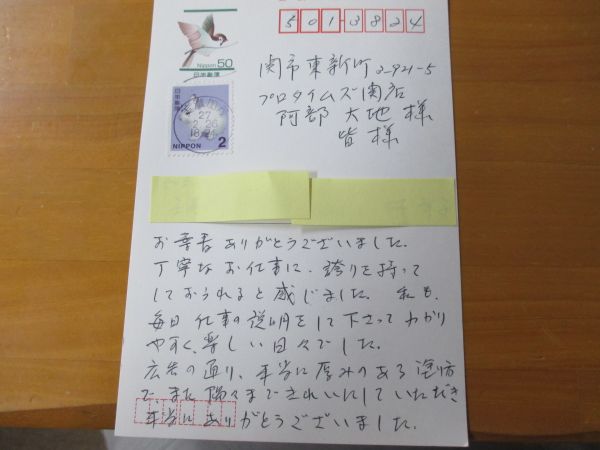 501 3824
Nippon 50
日本郵便
日本郵便
27
2.26
18-24
NIPPON 2
関市東新町2-921-5
プロタイムズ関店
阿部 大地 様
皆様
お葉書ありがとうございました。
丁寧なお仕事に、誇りを持って
しておられると感じました。私も、
毎日仕事の説明をして下さってわかり
やすく、楽しい日々でした。
広告の通り、本当に厚みのある塗方
で、また隅々まできれいにしていただき
本当にありがとうございました。